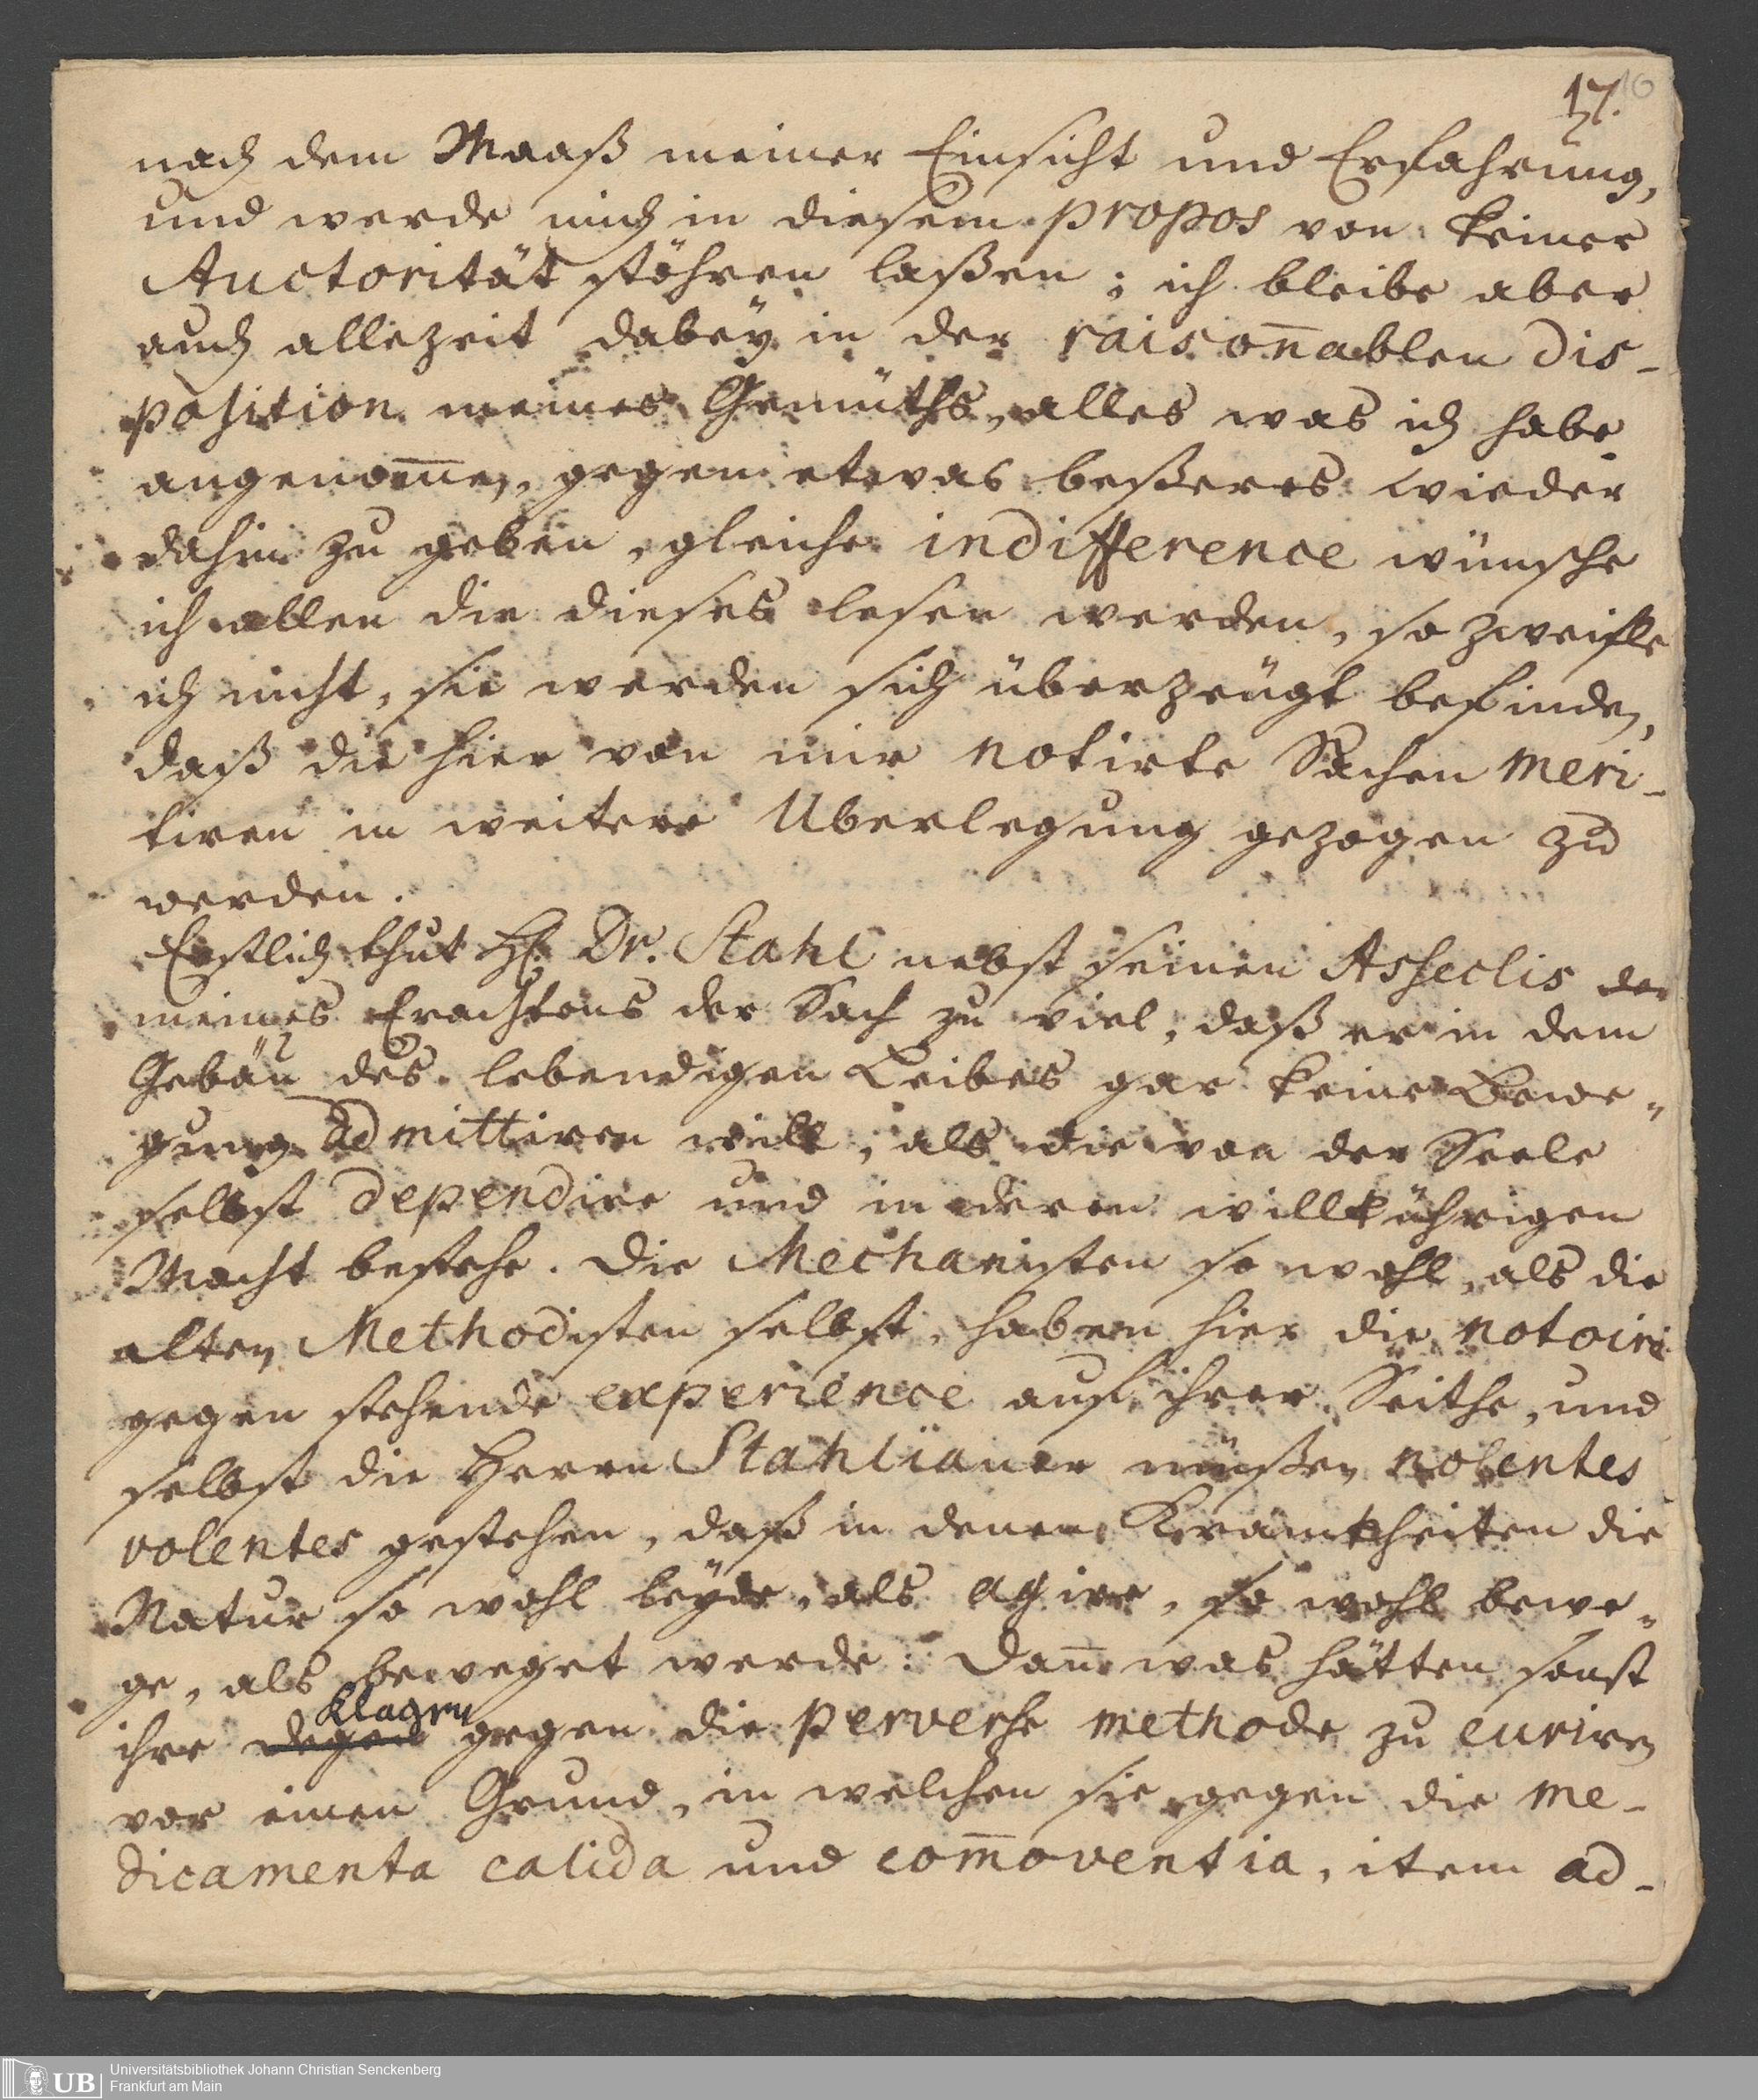 17. 10
nach dem Maaß meiner Einsicht und Erfahrung,
und werde mich in diesem propos von keiner
Auctorität stöhren laßen; ich bleibe aber
auch allezeit dabey in der raisoñablen dis-
position meines Gemüths, alles was ich habe
angenom̄en, gegen etwas beßeres wieder
dahin zu geben, gleiche indifference wünsche
ich allen die dieses lesen werden, so zweifle
ich nicht, sie werden sich überzeügt befinden,
daß die hier von mir notirte Sachen meri-
tiren in weitere Uberlegung gezogen zu
werden.
Erstlich thut H. Dr. Stahl nebst seinen Asseclis der
meines Erachtens der Sach zu viel, daß er in dem
Gebäu des lebendigen Leibes gar keine Bewe-
gung admittiren will, als die von der Seele
selbst dependire und in deren willkührigen
Macht bestehe. Die Mechanisten so wohl, als die
alten Methodisten selbst, haben hier die notoire
gegen stehende experience auf ihrer Seithe, und
selbst die Herrn Stahlianer müßen nolentes
volentes gestehen, daß in denen Kranckheiten die
Natur so wohl leyde, als agire, so wohl bewe-
ge, als beweget werde: Dañ was hätten sonst
Klagen
ihre degen gegen die perverse methode zu curiren
vor einen Grund, in welchen sie gegen die me-
dicamenta calida und com̄oventia, item ad-
UB Universitätsbibliothek Johann Christian Senckenberg
Frankfurt am Main